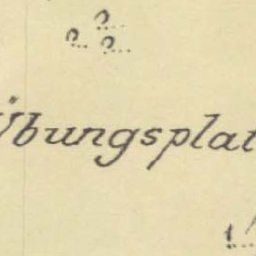 Übungsplat